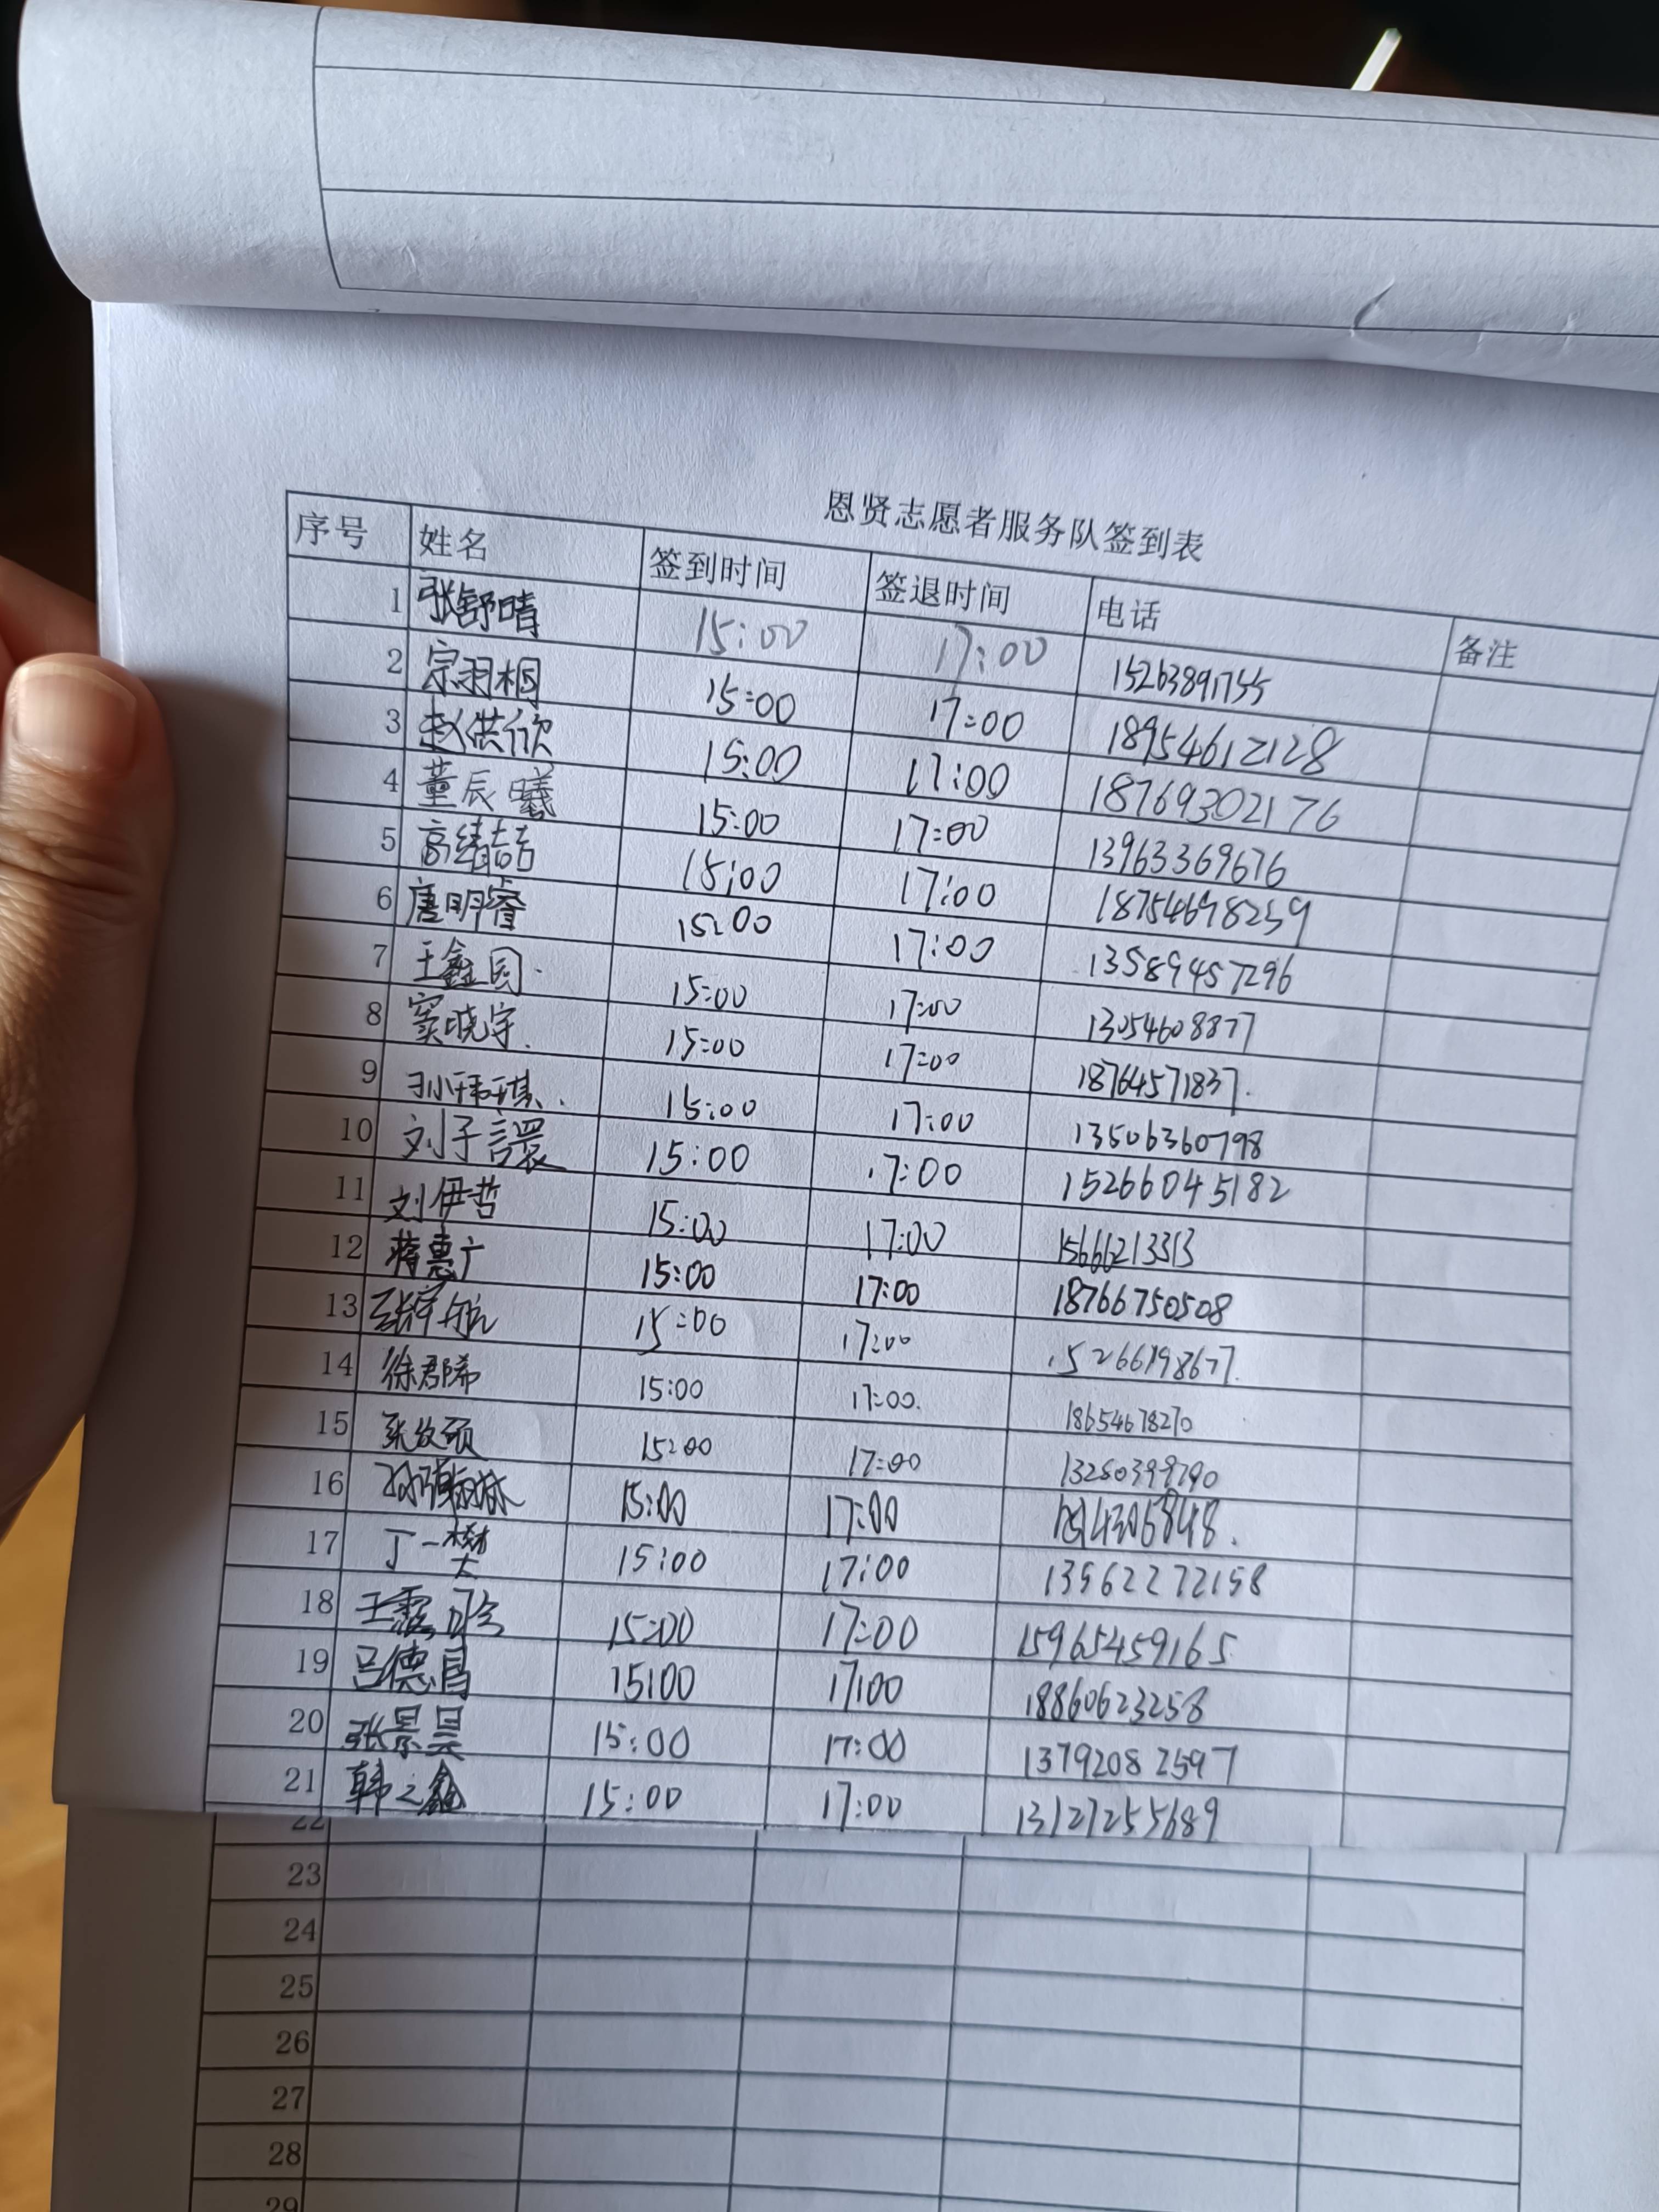 恩贤志愿者服务队签到表
序号 姓名 签到时间 签退时间 电话 备注
1 张舒晴 15:00 17:00 15263891755
2 宗羽桐 15:00 17:00 18954612128
3 赵洪欣 15:00 17:00 18769302176
4 董辰曦 15:00 17:00 13963369676
5 高绪喆 15:00 17:00 18754698259
6 唐明睿 15:00 17:00 13589457296
7 王鑫园 15:00 17:00 13054608877
8 窦晓宇 15:00 17:00 18764571837
9 孙玮琪 15:00 17:00 13506360798
10 刘子譞 15:00 17:00 15266045182
11 刘伊哲 15:00 17:00 15666213313
12 蒋惠广 15:00 17:00 18766750508
13 张宇航 15:00 17:00 15266198677
14 徐郡希 15:00 17:00 18654678270
15 15:00 17:00
16 15:00 17:00
17 丁一樊 15:00 17:00 13562272158
18 15:00 17:00 15965459165
19 吕德昌 15:00 17:00 18860623258
20 张景昊 15:00 17:00 13792082597
21 韩之鑫 15:00 17:00 13127255689
22
23
24
25
26
27
28
29